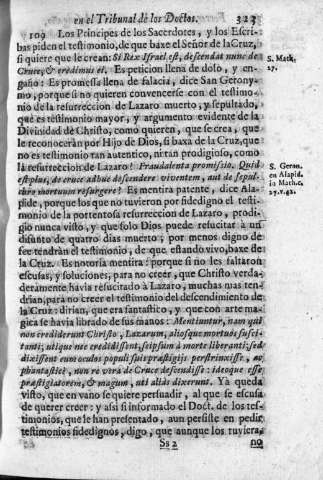 en el Tribunal de los Doctos. 323
109 Los Principes de los Sacerdotes, y los Escri-
bas piden el testimonio, de que baxe el Señor de la Cruz,
si quiere que le crean: Si Rex Israel est, descendat nunc de
Cruce, & credimus ei. Es peticion llena de dolo, y en-
gaño: Es promessa llena de falacia, dice San Gerony-
mo, porque si no quieren convencerse con el testimo-
nio de la resurreccion de Lazaro muerto, y sepultado,
que es testimonio mayor, y argumento evidente de la
Divinidad de Christo, como quieren, que se crea, que
le reconoceràn por Hijo de Dios, si baxa de la Cruz, que
no es testimonio tan autentico, ni tan prodigioso, como
la resurreccion de Lazaro? Fraudulenta promissio. Quid
est plus, de cruce adhuc descendere viventem, aut de sepul-
chro mortuum resurgere? Es mentira patente, dice Ala-
pide, porque los que no tuvieron por fidedigno el testi-
monio de la portentosa resurreccion de Lazaro, prodi-
gio nunca visto, y que solo Dios puede resucitar à un
difunto de quatro dias muerto; por menos digno de
fee tendràn el testimonio, de que estando vivo, baxe de
la Cruz. Es notoria mentira: porque si no les faltaron
escusas, y soluciones, para no creer, que Christo verda-
deramente havia resucitado à Lazaro, muchas mas ten-
drian, para no creer el testimonio del descendimiento de
la Cruz: dirian, que era fantastico, y que con arte ma-
gica se havia librado de sus manos: Mentiuntur, nam qui
non crediderunt Christo, Lazarum, aliosque mortuos susci-
tanti; utique nec credidissent, seipsum à morte liberanti; sed
dixissent eum oculos populi suis præstigijs perstrinxisse, ac
phantasticè, non re vera de Cruce descendisse: ideoque esse
præstigiatorem, & magum, uti aliàs dixerunt. Ya queda
visto, que en vano se quiere persuadir, al que se escusa
de querer creer: y assi si informado el Doct. de los tes-
timonios, que le han presentado, aun persiste en pedir
testimonios fidedignos, digo, que aunque los tuviera,
Ss 2 no
S. Math.
27.
S. Geran.
en Alapid.
in Mathe.
27. v. 42.